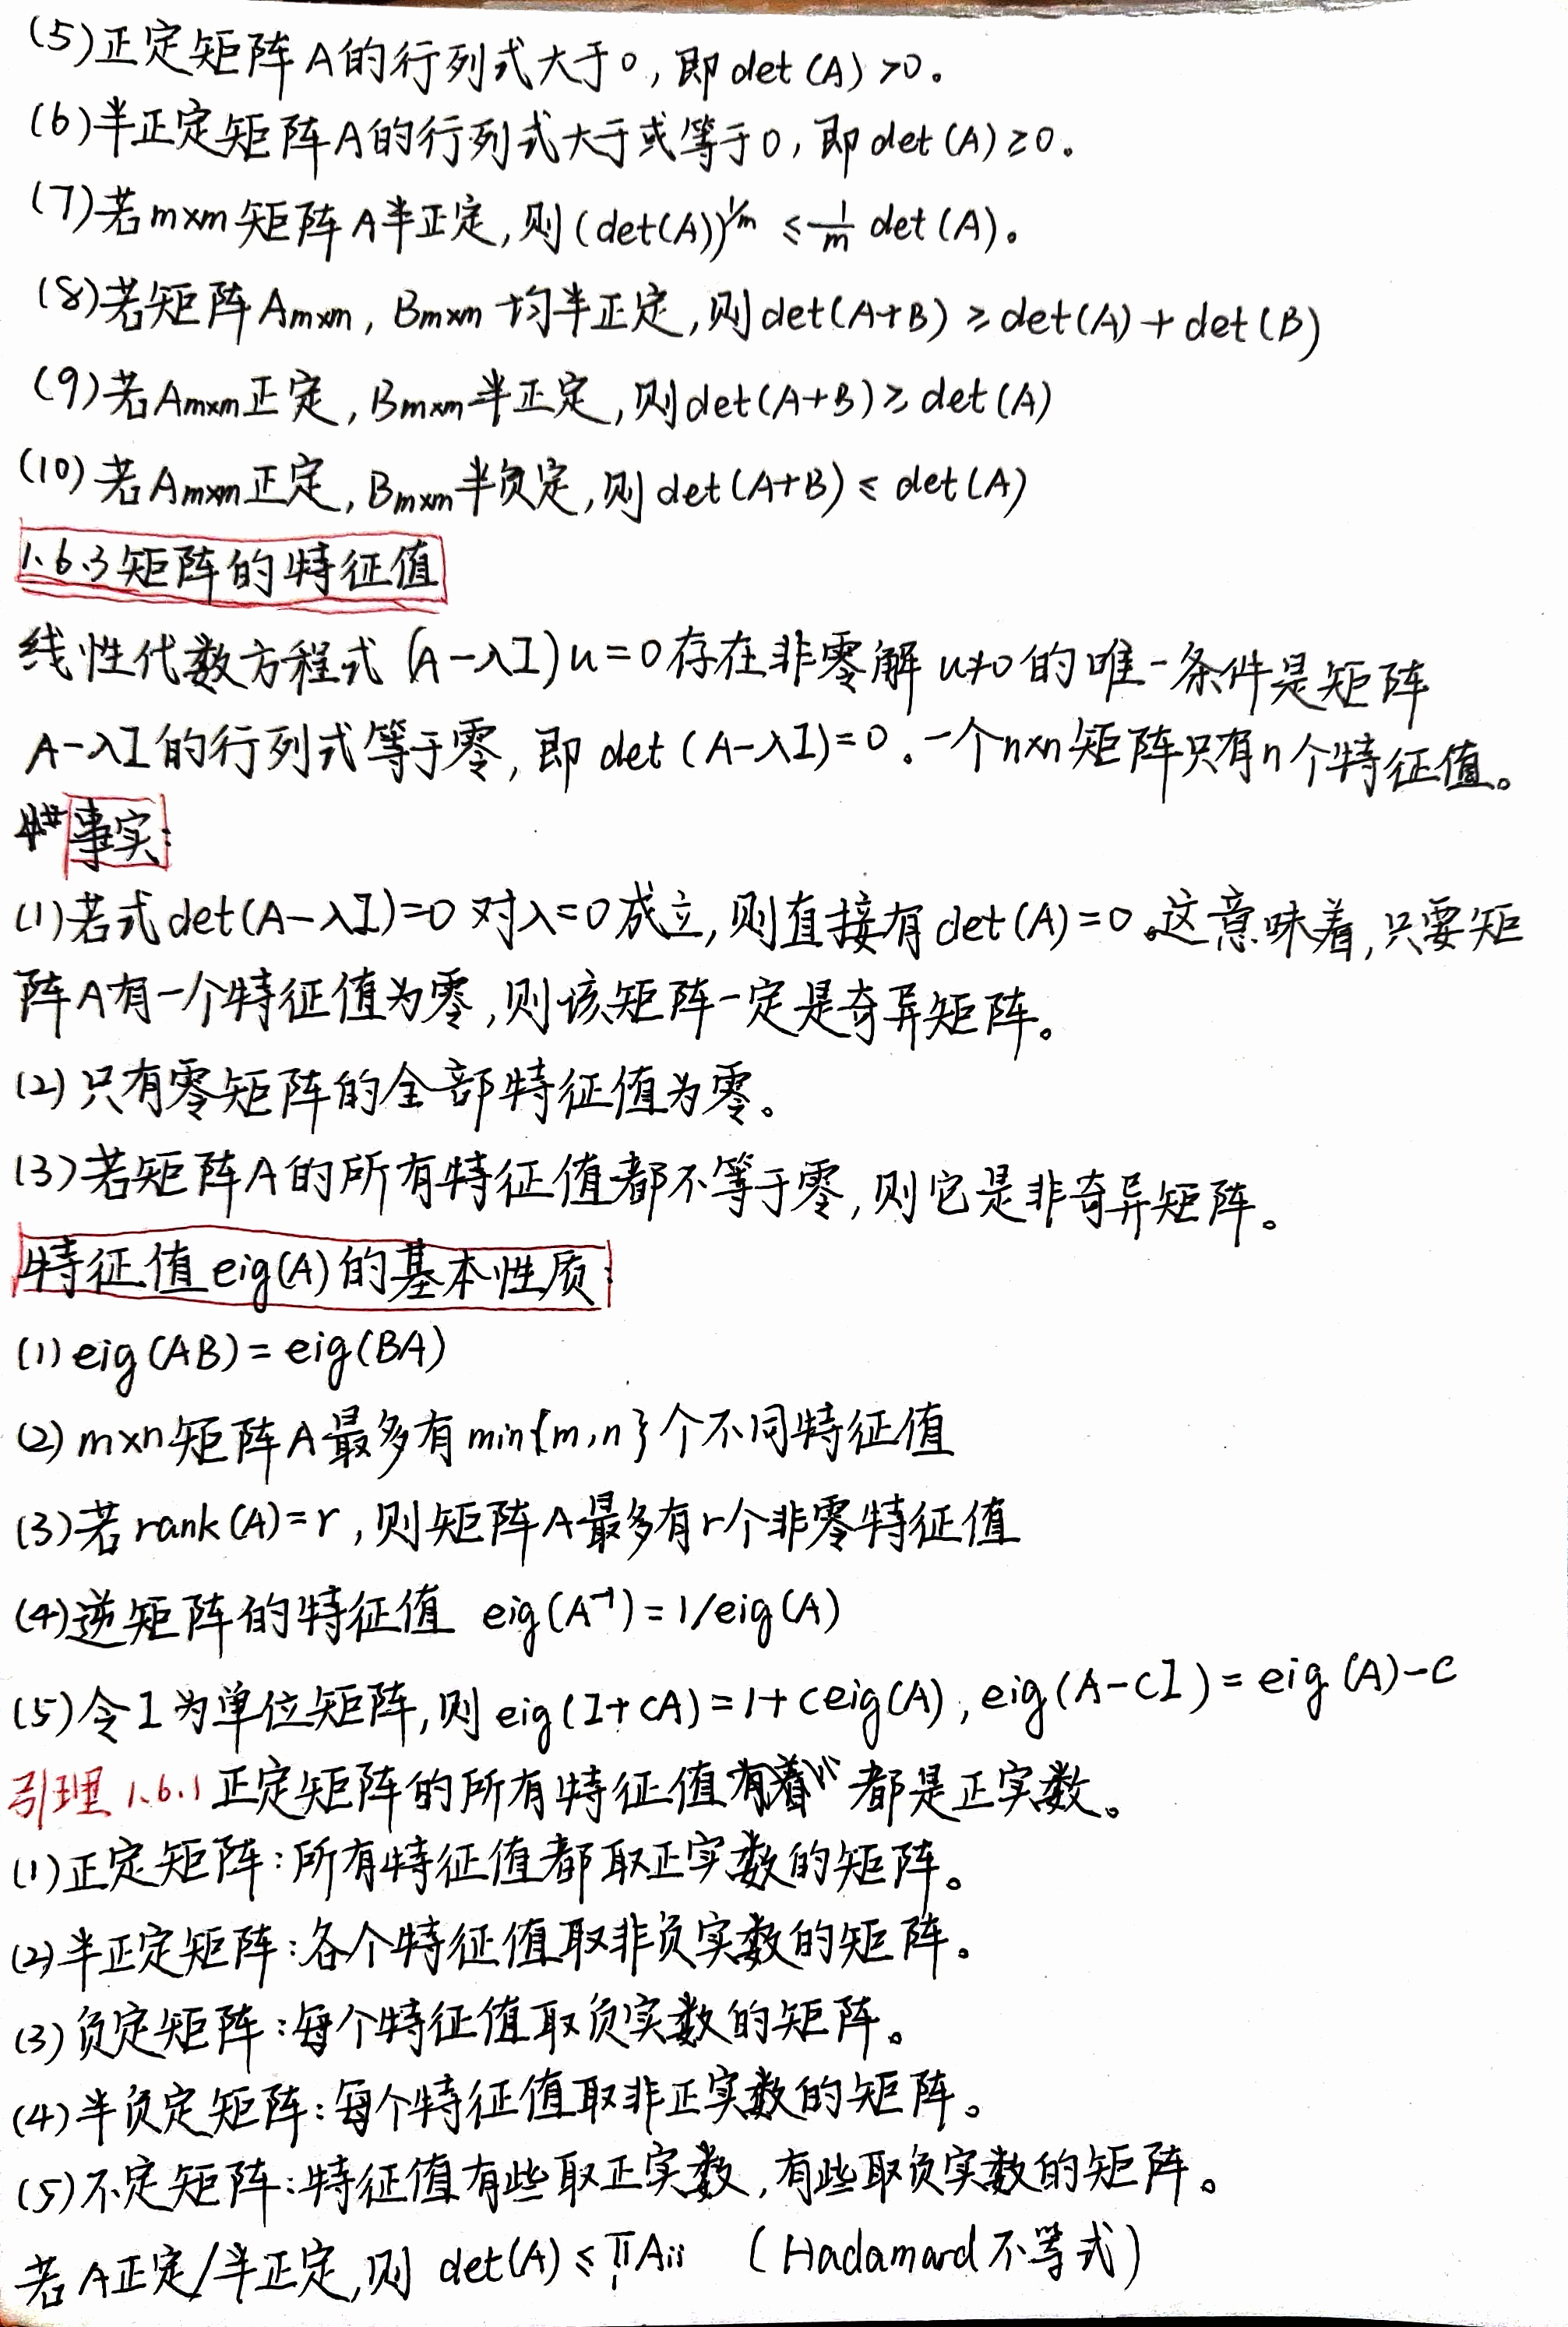 (5)正定矩阵A的行列式大于0,即det(A)>0。
(6)半正定矩阵A的行列式大于或等于0,即det(A)≥0。
(7)若m×m矩阵A半正定,则(det(A))^{1/m} ≤ \frac{1}{m} det(A)。
(8)若矩阵A_{m×m}, B_{m×m}均半正定,则det(A+B)≥det(A)+det(B)
(9)若A_{m×m}正定,B_{m×m}半正定,则det(A+B)≥det(A)
(10)若A_{m×m}正定,B_{m×m}半负定,则det(A+B)≤det(A)
1.6.3矩阵的特征值
线性代数方程式(A-λI)u=0存在非零解u≠0的唯一条件是矩阵
A-λI的行列式等于零,即det(A-λI)=0。一个n×n矩阵只有n个特征值。
事实:
(1)若式det(A-λI)=0对λ=0成立,则直接有det(A)=0。这意味着,只要矩
阵A有一个特征值为零,则该矩阵一定是奇异矩阵。
(2)只有零矩阵的全部特征值为零。
(3)若矩阵A的所有特征值都不等于零,则它是非奇异矩阵。
特征值eig(A)的基本性质:
(1)eig(AB)=eig(BA)
(2)m×n矩阵A最多有min{m,n}个不同特征值
(3)若rank(A)=r,则矩阵A最多有r个非零特征值
(4)逆矩阵的特征值 eig(A^{-1})=1/eig(A)
(5)令I为单位矩阵,则eig(I+cA)=1+ceig(A), eig(A-cI)=eig(A)-c
引理1.6.1正定矩阵的所有特征值都是正实数。
(1)正定矩阵:所有特征值都取正实数的矩阵。
(2)半正定矩阵:各个特征值取非负实数的矩阵。
(3)负定矩阵:每个特征值取负实数的矩阵。
(4)半负定矩阵:每个特征值取非正实数的矩阵。
(5)不定矩阵:特征值有些取正实数,有些取负实数的矩阵。
若A正定/半正定,则 det(A)≤∏_i A_{ii} (Hadamard不等式)